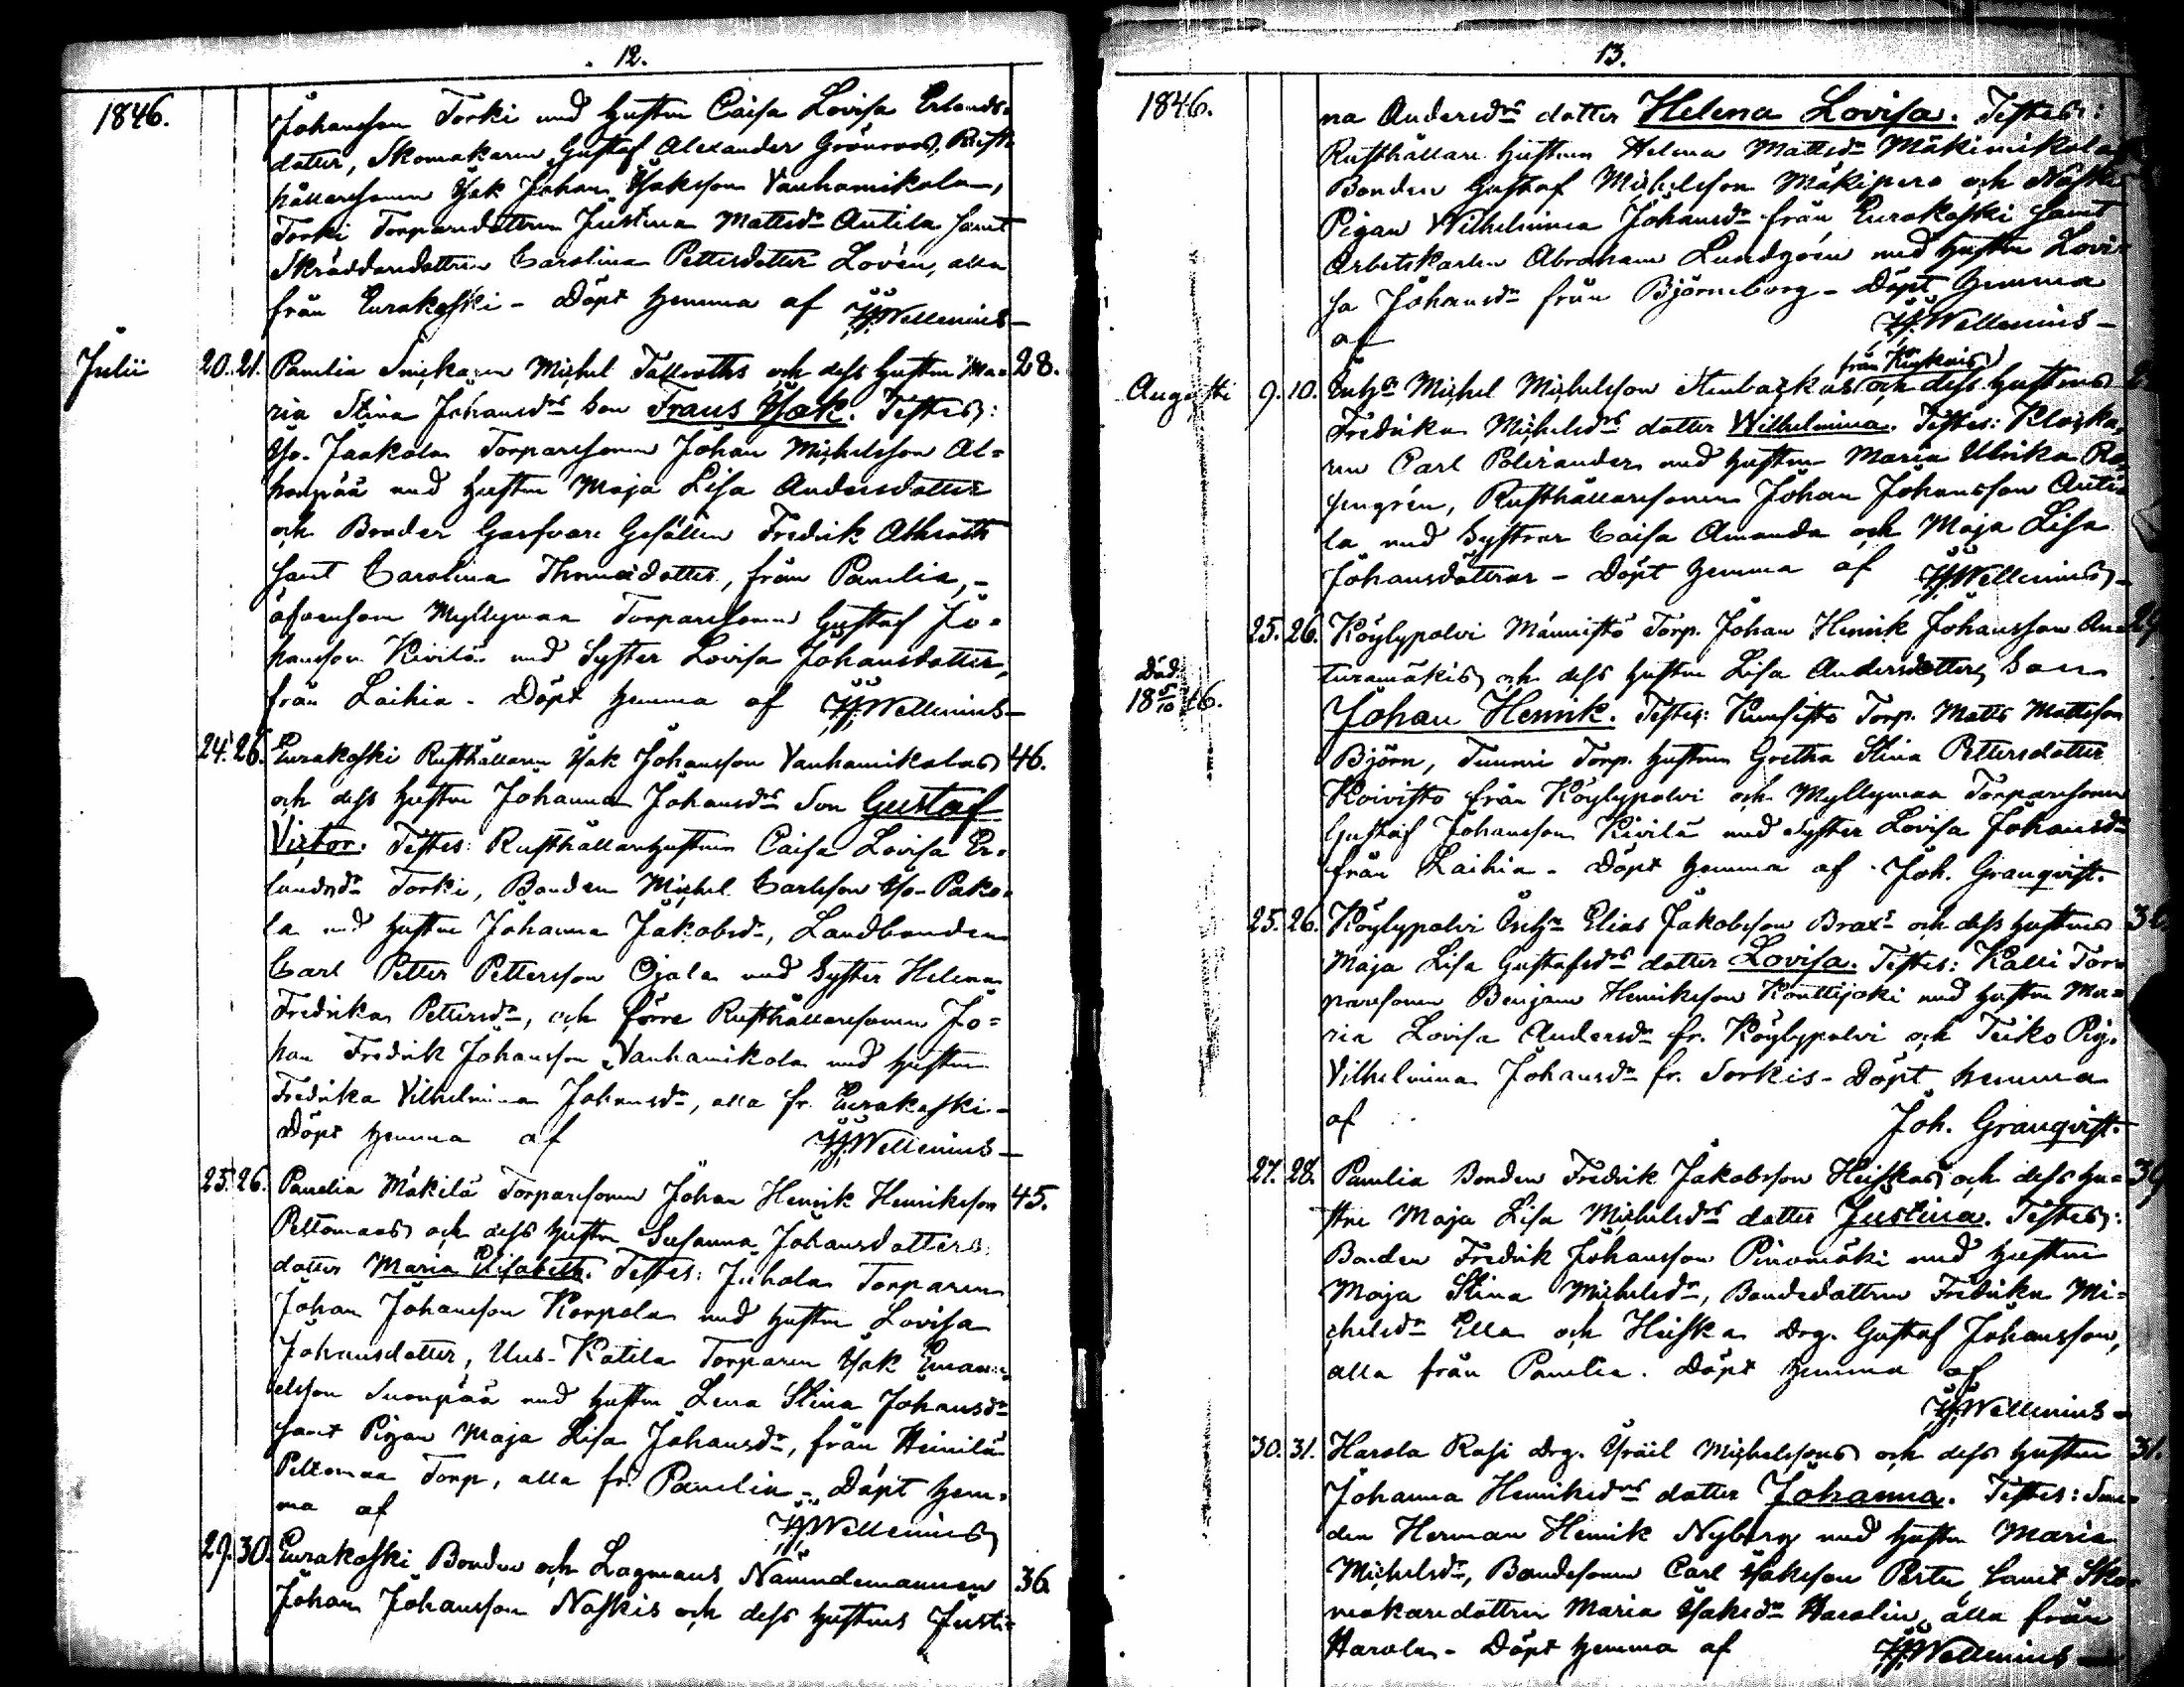 12.
1846.
Johansson Torki med hustru Caisa Lovisa Erlands-
dotter, Skomakaren Gustaf Alexander Grönroos, Rust-
hållaresonen Isak Johan Isaksson Vanhamikola,
Torki Torparedottren Justina Mattsdr Antila samt
Skräddaredottren Carolina Pettersdotter Lovén, alla
från Eurakoski - Döpt hemma af Wellenius
Julii 20. 21. Panelia Snickaren Michel Tallroths och dess hustru Ma- 28.
ria Stina Johansdrs son Frans Isak. Testes:
Iso-Jaakola Torparesonen Johan Michelsson Al-
honpää med hustru Maja Lisa Andersdotter
och Bonden Garfvare Gesällen Fredrik Ahlroth
samt Carolina Thomædotter, från Panelia,
äfvensom Myllymaa Torparesonen Gustaf Jo-
hansson Kivilä med Syster Lovisa Johansdotter,
från Laihia. Döpt hemma af Wellenius
24. 26. Eurakoski Rusthållaren Isak Johansson Vanhamikolas 46.
och dess hustru Johanna Johansdrs Son Gustaf
Victor. Testes: Rusthållarehustrun Caisa Lovisa Er-
landsdr Torki, Bonden Michel Carlsson Iso-Pako-
la med hustru Johanna Jakobsdr, Landbonden
Carl Petter Pettersson Ojala med Syster Helena
Fredrika Pettersdr, och förre Rusthållaresonen Jo-
han Fredrik Johansson Vanhamikola med hustru
Fredrika Vilhelmina Johansdr, alla fr. Eurakoski -
Döpt hemma af Wellenius
25. 26. Panelia Mäkilä Torparesonen Johan Henrik Henriksson 45.
Peltomaas och dess hustru Susanna Johansdotters
dotter Maria Elisabeth. Testes: Juhola Torparen
Johan Johansson Korpela med hustru Lovisa
Johansdotter, Uus-Kätilä Torparen Isak Emanu-
elsson Suonpää med hustru Lena Stina Johansdr
samt Pigan Maja Lisa Johansdr, från Heinilä
Peltomaa Torp, alla fr. Panelia - Döpt hem-
ma af Wellenius
29. 30. Eurakoski Bonden och Lagmans Nämndemannen 36.
Johan Johansson Naskis och dess hustrus Justi-
13.
1846.
na Andersdrs dotter Helena Lovisa. Testes:
Rusthållare hustrun Helena Mattsdr Mäkimikola
Bonden Gustaf Michelsson Mäkiperä och Naski
Pigan Wilhelmina Johansdr från Eurakoski samt
Arbetskarlen Abraham Lundgrén med hustru Lovi-
sa Johansdr från Björneborg - Döpt hemma
af Wellenius
från
Augusti 9. 10. Inhs Michel Michelsson Stenbackas och dess hustrus
Fredrika Michelsdrs dotter Wilhelmina. Testes: Klocka-
ren Carl Polviander med hustru Maria Ulrika Ro-
sengrén, Rusthållaresonen Johan Johansson Anti-
la med Systrar Caisa Amanda och Maja Lisa
Johansdöttrar - Döpt hemma af Wellenius
25. 26. Köylypolvi Männistö Torp. Johan Henrik Johansson An-
turamäkis och dess hustru Lisa Andersdotters Son
Död
18 5/10 46.
Johan Henrik. Testes: Kuusisto Torp. Matts Mattsson
Björn, Tunnri Torp. hustrun Gretha Stina Pettersdotter
Koivisto från Köylypolvi och Myllymaa Torparesonen
Gustaf Johansson Kivilä med Syster Lovisa Johansdr
från Laihia - Döpt hemma af Joh. Granqvist.
25. 26. Köylypolvi Inhs Elias Jakobsson Brax och dess hustrus
Maja Lisa Gustafsdrs dotter Lovisa. Testes: Kalli Tor-
paresonen Benjam Henriksson Konttijoki med hustru Ma-
ria Lovisa Andersdr fr. Köylypolvi och Teiko Pig.
Vilhelmina Johansdr fr. Sorkis - Döpt hemma
af Joh. Granqvist.
27. 28. Panelia Bonden Fredrik Jakobsson Heiskas och dess hu- 39
stru Maja Lisa Michelsdrs dotter Justina. Testes:
Bonden Fredrik Johansson Pinomäki med hustru
Maja Stina Michelsdr, Bondedottren Fredrika Mi-
chelsdr Ella och Heiska Drg. Gustaf Johansson,
alla från Panelia. Döpt hemma af
Wellenius
30. 31. Harola Rasi Drg. Israël Michelssons och dess hustru 31.
Johanna Henriksdrs dotter Johanna. Testes: Sme-
den Herman Henrik Nyberg med hustru Maria
Michelsdr, Bondesonen Carl Isaksson Pertu samt Sko-
makaredottren Maria Isaksdr Harolin, alla från
Harola - Döpt hemma af Wellenius